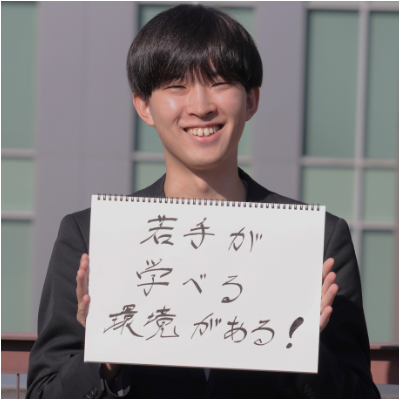 若手が
学べる
環境がある!